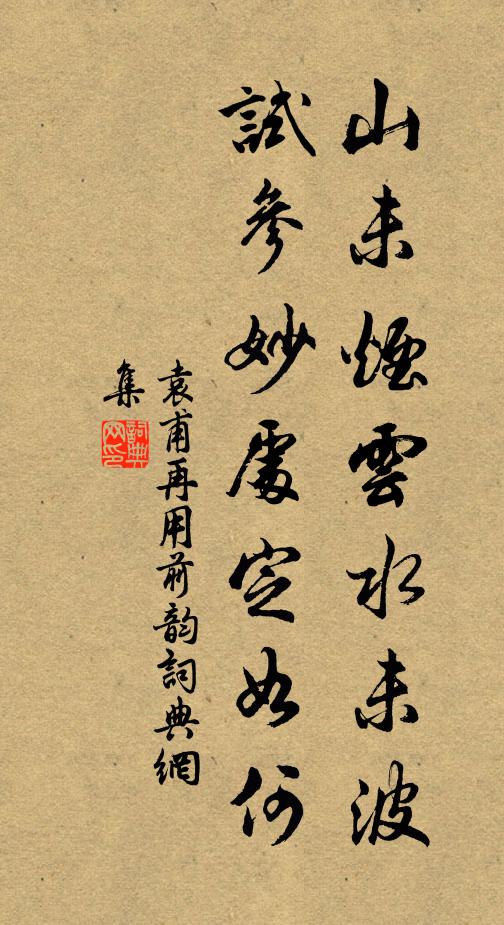 山未煙雲水未波
試參妙處定如何
袁甫再用前韵詞典網
集
詞典網印